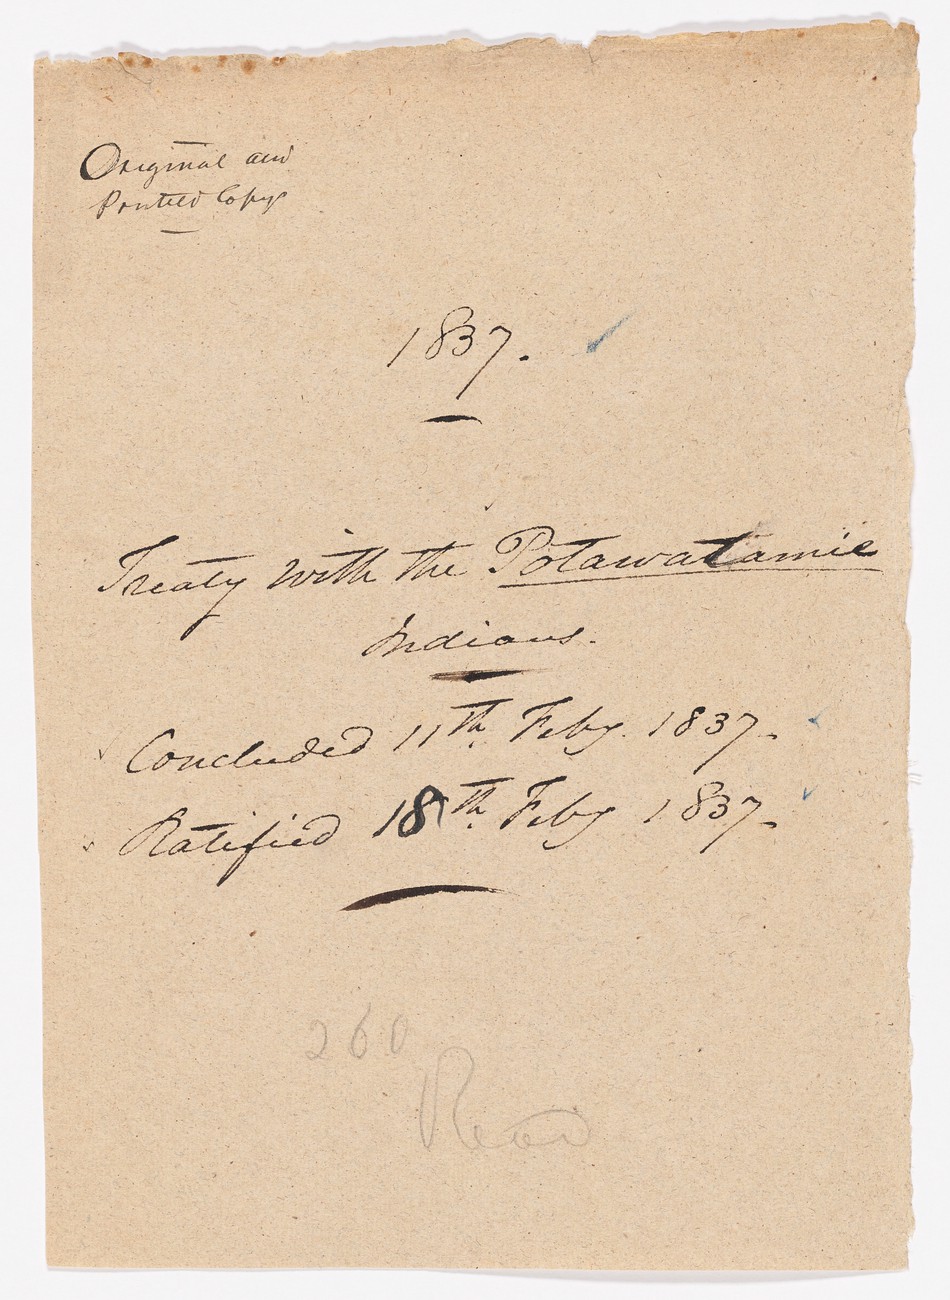 Original and
Printed Copy
1837.
Treaty with the Potawatamie
Indians.
Concluded 11th Feby. 1837.
Ratified 18th Feby 1837.
260
Read